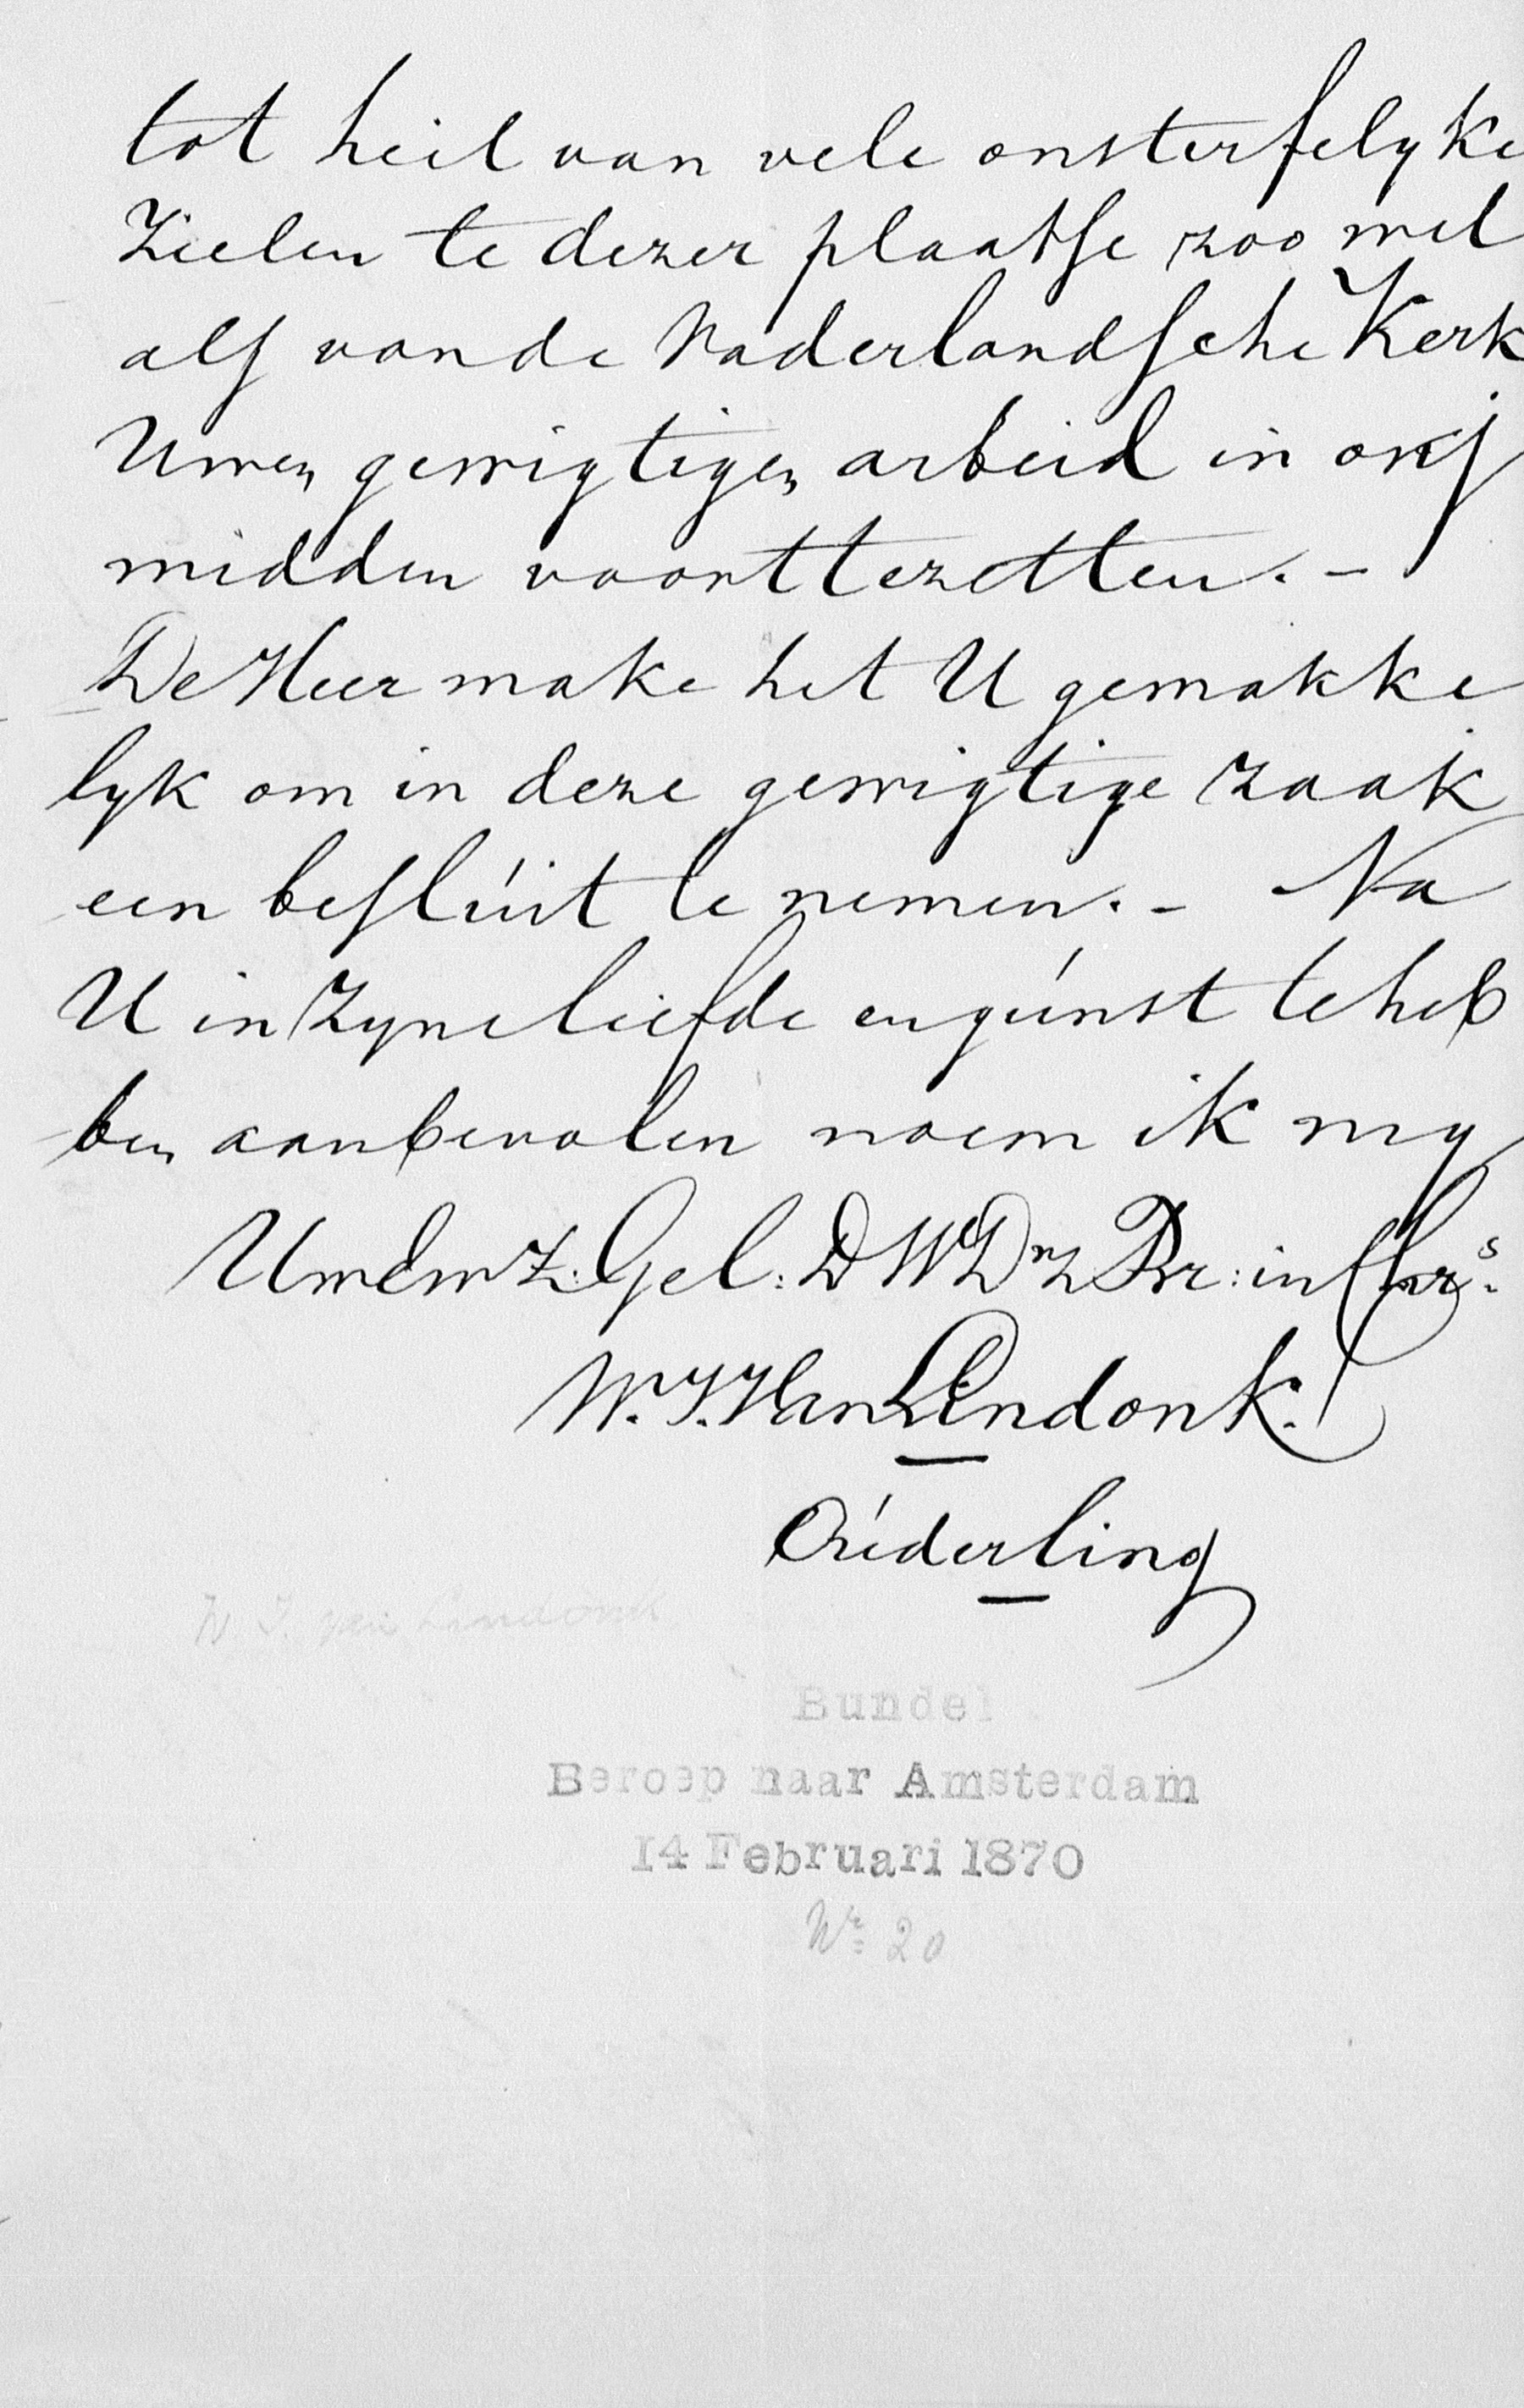 tot heil van vele onsterfelyke
Zielen te dezer plaatse zoo wel
als van de Vaderlandsche Kerk
Uwen gewigtigen arbeid in ons
midden voorttezetten. -
De Heer make het U gemakke
lyk om in deze gewigtige zaak
een beslúit te nemen. - Na
U in Zyne liefde en gúnst te heb
ben aanbevolen noem ik my
UwEwZ: Gel: DWDnr Br: in Chrs.
W. J. Van Lindonk.
Oúderling
W. J. van Lindonk
Bundel
Beroep naar Amsterdam
14 Februari 1870
Nr 20